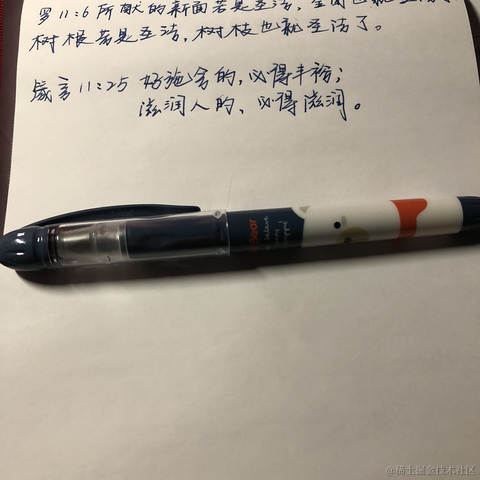 罗11:6 所献的新面若是圣洁，全团也就圣洁了
树根若是圣洁，树枝也就圣洁了。
箴言11:25 好施舍的，必得丰裕；
滋润人的、必得滋润。
Bear
@稀土掘金技术社区